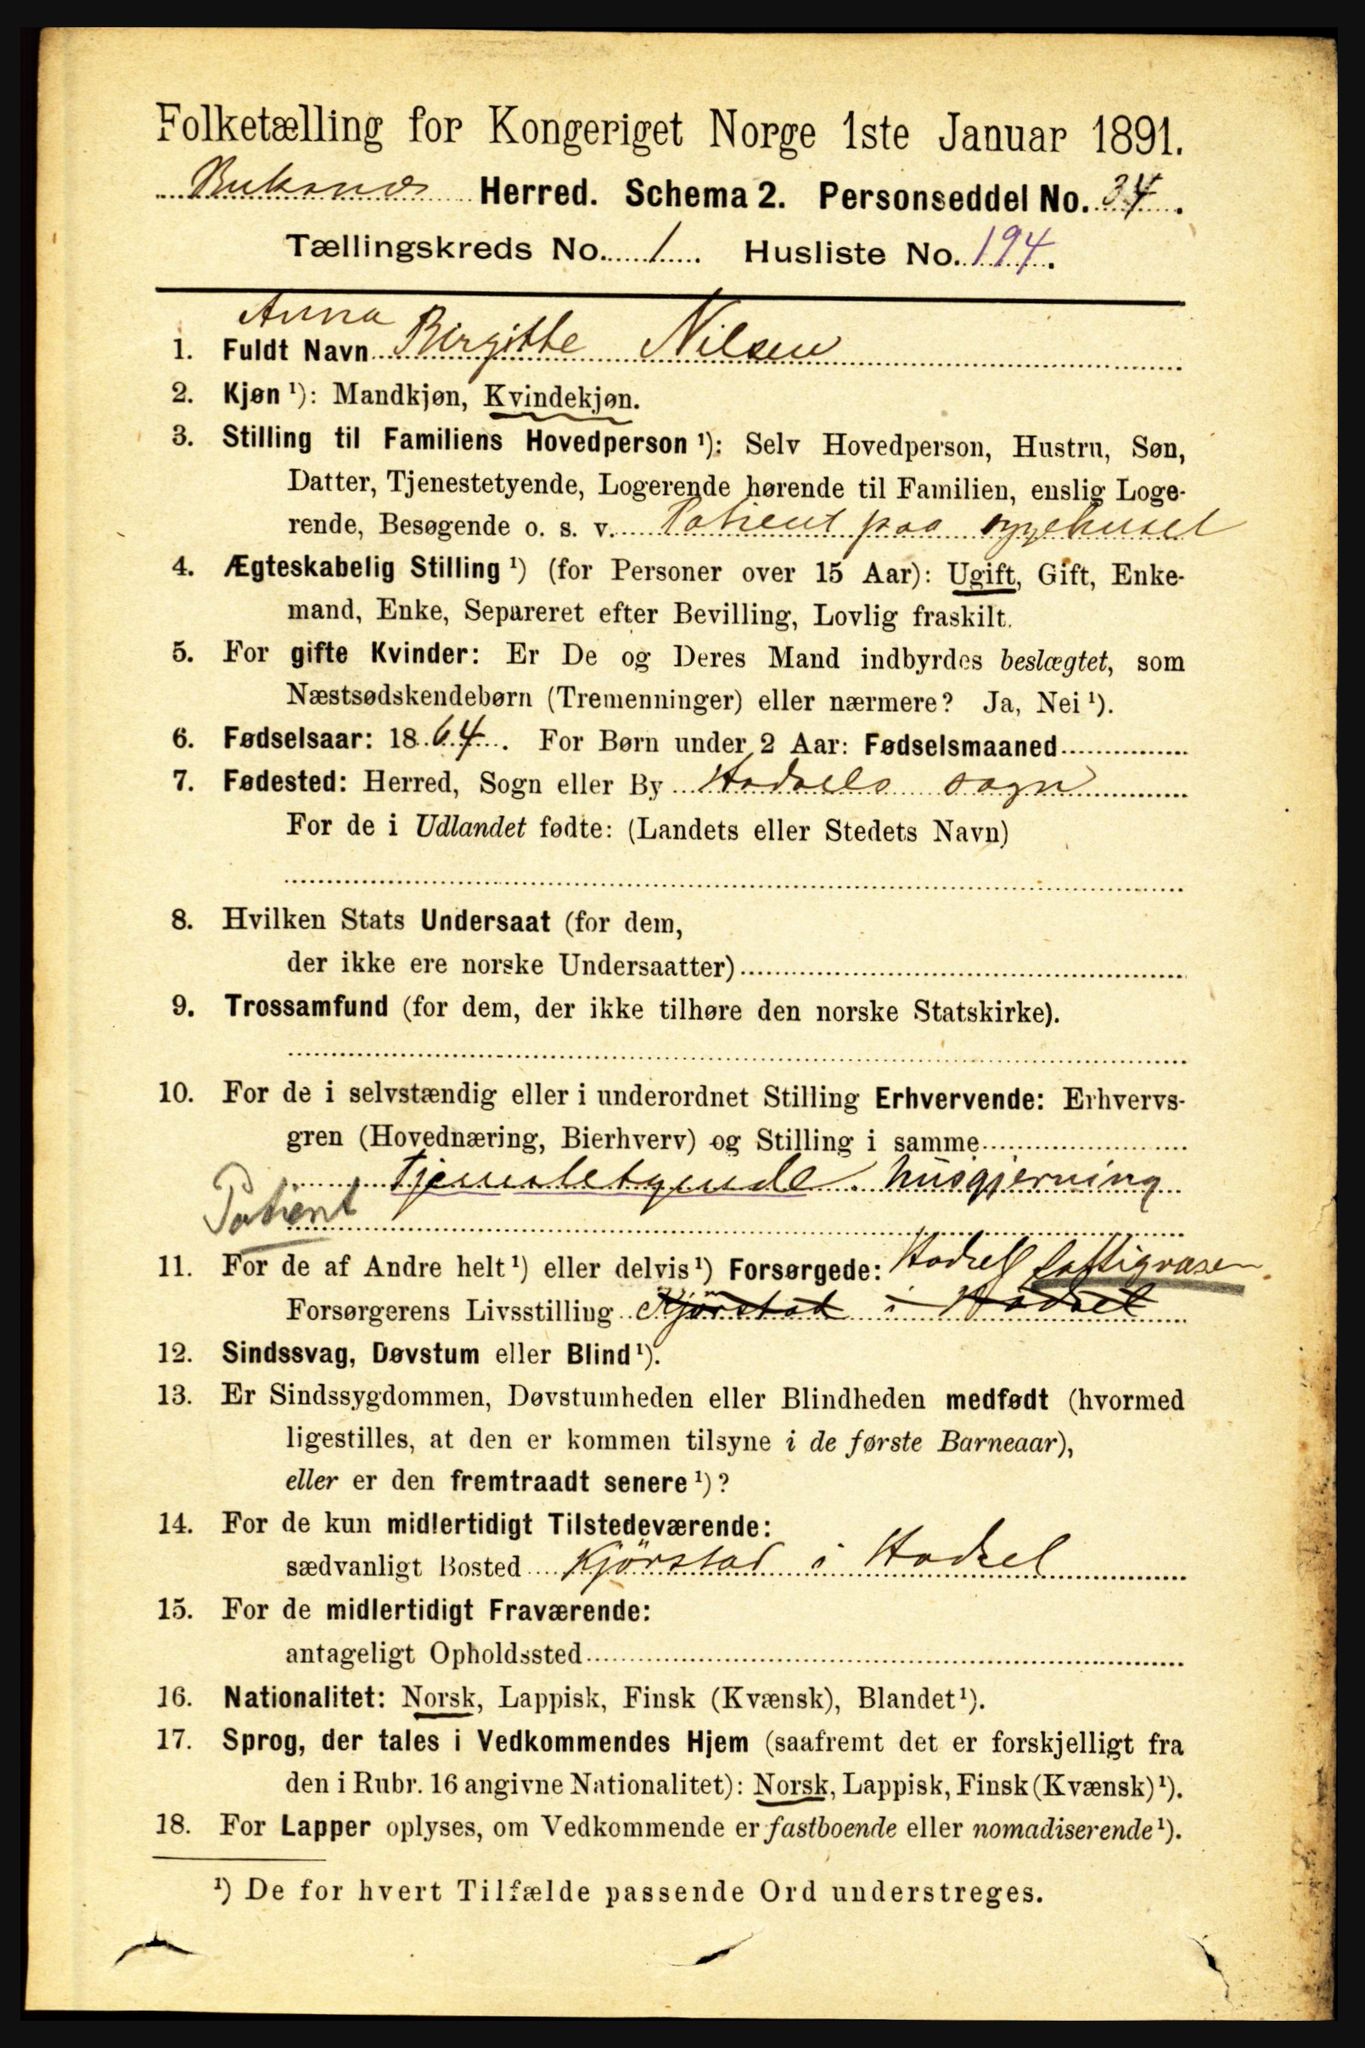 Folketælling for Kongeriget Norge 1ste Januar 1891.
Buksnes Herred. Schema 2. Personseddel No. 34.
Tællingskreds No. 1. Husliste No. 194.
Anna
1. Fuldt Navn Birgitte Nilsen
2. Kjøn ¹): Mandkjøn, Kvindekjøn.
3. Stilling til Familiens Hovedperson ¹): Selv Hovedperson, Hustru, Søn,
Datter, Tjenestetyende, Logerende hørende til Familien, enslig Loge-
rende, Besøgende o. s. v. Patient paa sygehuset
4. Ægteskabelig Stilling ¹) (for Personer over 15 Aar): Ugift, Gift, Enke-
mand, Enke, Separeret efter Bevilling, Lovlig fraskilt.
5. For gifte Kvinder: Er De og Deres Mand indbyrdes beslægtet, som
Næstsødskendebørn (Tremenninger) eller nærmere? Ja, Nei ¹).
6. Fødselsaar: 1864. For Børn under 2 Aar: Fødselsmaaned
7. Fødested: Herred, Sogn eller By Hadsels sogn
For de i Udlandet fødte: (Landets eller Stedets Navn)
8. Hvilken Stats Undersaat (for dem,
der ikke ere norske Undersaatter)
9. Trossamfund (for dem, der ikke tilhøre den norske Statskirke).
10. For de i selvstændig eller i underordnet Stilling Erhvervende: Erhvervs-
gren (Hovednæring, Bierhverv) og Stilling i samme
Tjenestetyende. husgjerning
Patient
11. For de af Andre helt ¹) eller delvis ¹) Forsørgede: Hadsel fattigvæsen
Forsørgerens Livsstilling Kjörstad i Hadsel
12. Sindssvag, Døvstum eller Blind ¹).
13. Er Sindssygdommen, Døvstumheden eller Blindheden medfødt (hvormed
ligestilles, at den er kommen tilsyne i de første Barneaar),
eller er den fremtraadt senere ¹)?
14. For de kun midlertidigt Tilstedeværende:
sædvanligt Bosted Kjörstad i Hadsel
15. For de midlertidigt Fraværende:
antageligt Opholdssted
16. Nationalitet: Norsk, Lappisk, Finsk (Kvænsk), Blandet ¹).
17. Sprog, der tales i Vedkommendes Hjem (saafremt det er forskjelligt fra
den i Rubr. 16 angivne Nationalitet): Norsk, Lappisk, Finsk (Kvænsk) ¹).
18. For Lapper oplyses, om Vedkommende er fastboende eller nomadiserende ¹).
¹) De for hvert Tilfælde passende Ord understreges.